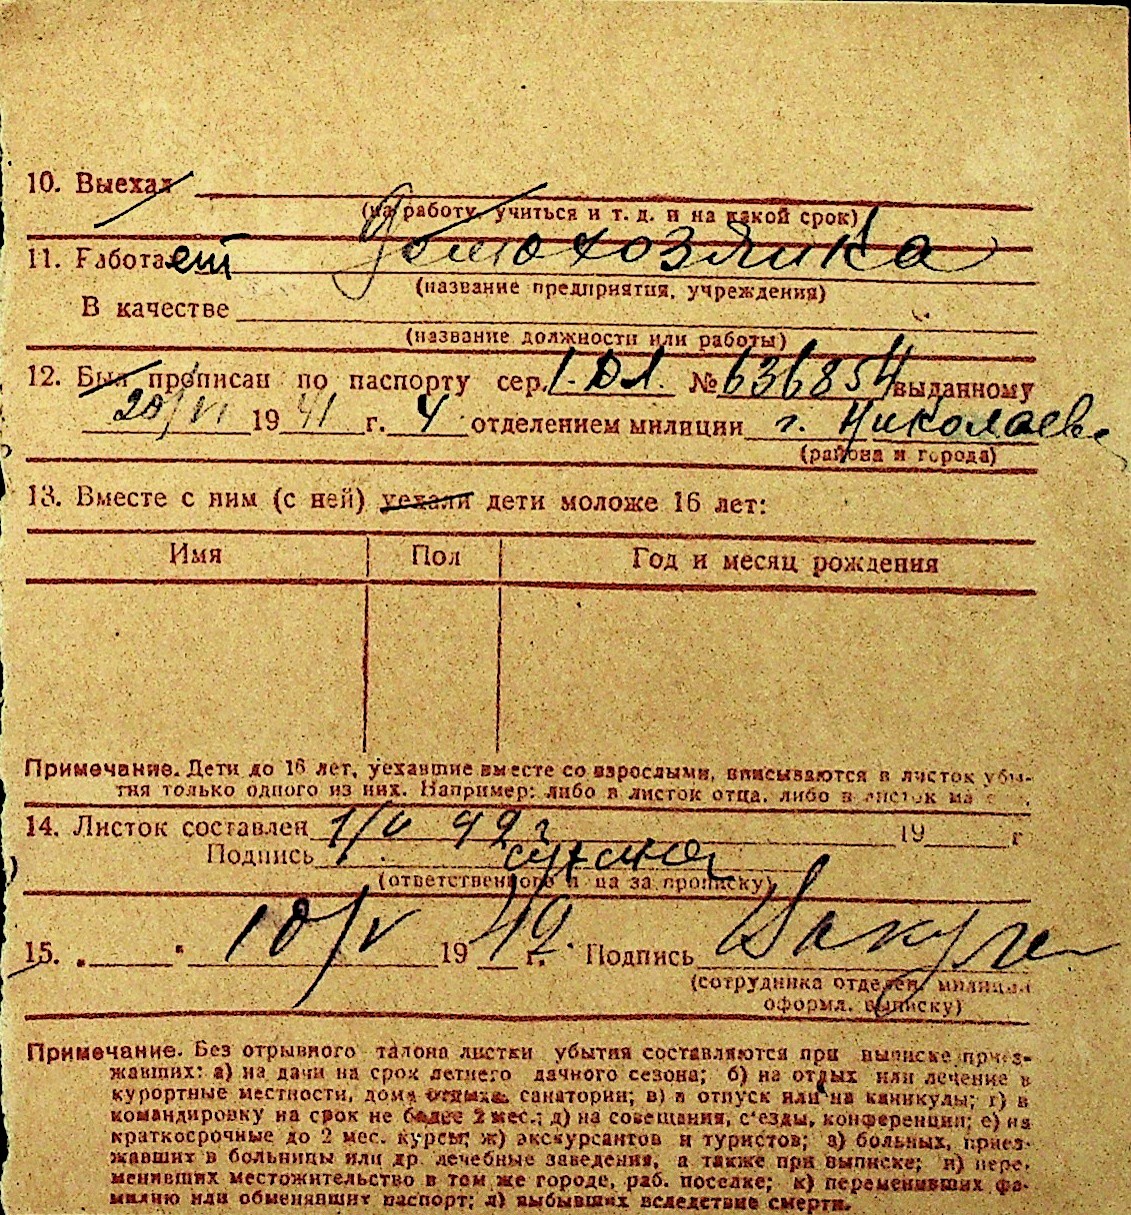 10. Выехал
(на работу, учиться и т. д. и на какой срок)
11. Работает Домохозяйка
(название предприятия, учреждения)
В качестве
(название должности или работы)
12. Был прописан по паспорту сер. № 636854 выданному
20/VI 1941 г. 4 отделением милиции г. Николаев
(района и города)
13. Вместе с ним (с ней) уехали дети моложе 16 лет:
Имя Пол Год и месяц рождения
Примечание. Дети до 16 лет, уехавшие вместе со взрослыми, вписываются в листок убы-
тия только одного из них. Например: либо в листок отца, либо в листок
14. Листок составлен 19 г
Подпись
(ответственного за прописку)
15. „ " 10/V 1949 г. Подпись
(сотрудника отделен. милиции
оформл. выписку)
Примечание. Без отрывного талона листки убытия составляются при выписке приез-
жавших: а) на дачи на срок летнего дачного сезона; б) на отдых или лечение в
курортные местности, дома отдыха, санатории; в) в отпуск или на каникулы; г) в
командировку на срок не более 2 мес.; д) на совещания, с'езды, конференции; е) на
краткосрочные до 2 мес. курсы; ж) экскурсантов и туристов; з) больных, приез-
жавших в больницы или др. лечебные заведения, а также при выписке; и) пере-
менивших местожительство в том же городе, раб. поселке; к) переменивших фа-
милию или обменявших паспорт; л) выбывших вследствие смерти.